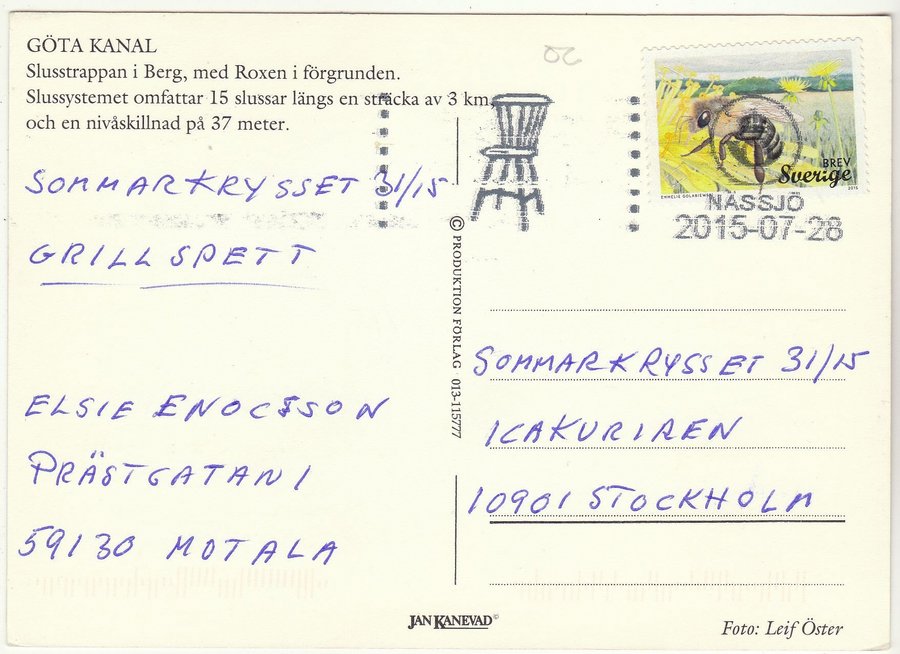 GÖTA KANAL
Slusstrappan i Berg, med Roxen i förgrunden.
Slussystemet omfattar 15 slussar längs en sträcka av 3 km
och en nivåskillnad på 37 meter.
SOMMARKRYSSET 31/15
GRILLSPETT
ELSIE ENOCSSON
PRÄSTGATAN 1
59130 MOTALA
© PRODUKTION FÖRLAG 013-115777
20
BREV
Sverige
2015
NÄSSJÖ
2015-07-28
SOMMARKRYSSET 31/15
ICAKURIREN
10901 STOCKHOLM
JAN KANEVAD©
Foto: Leif Öster